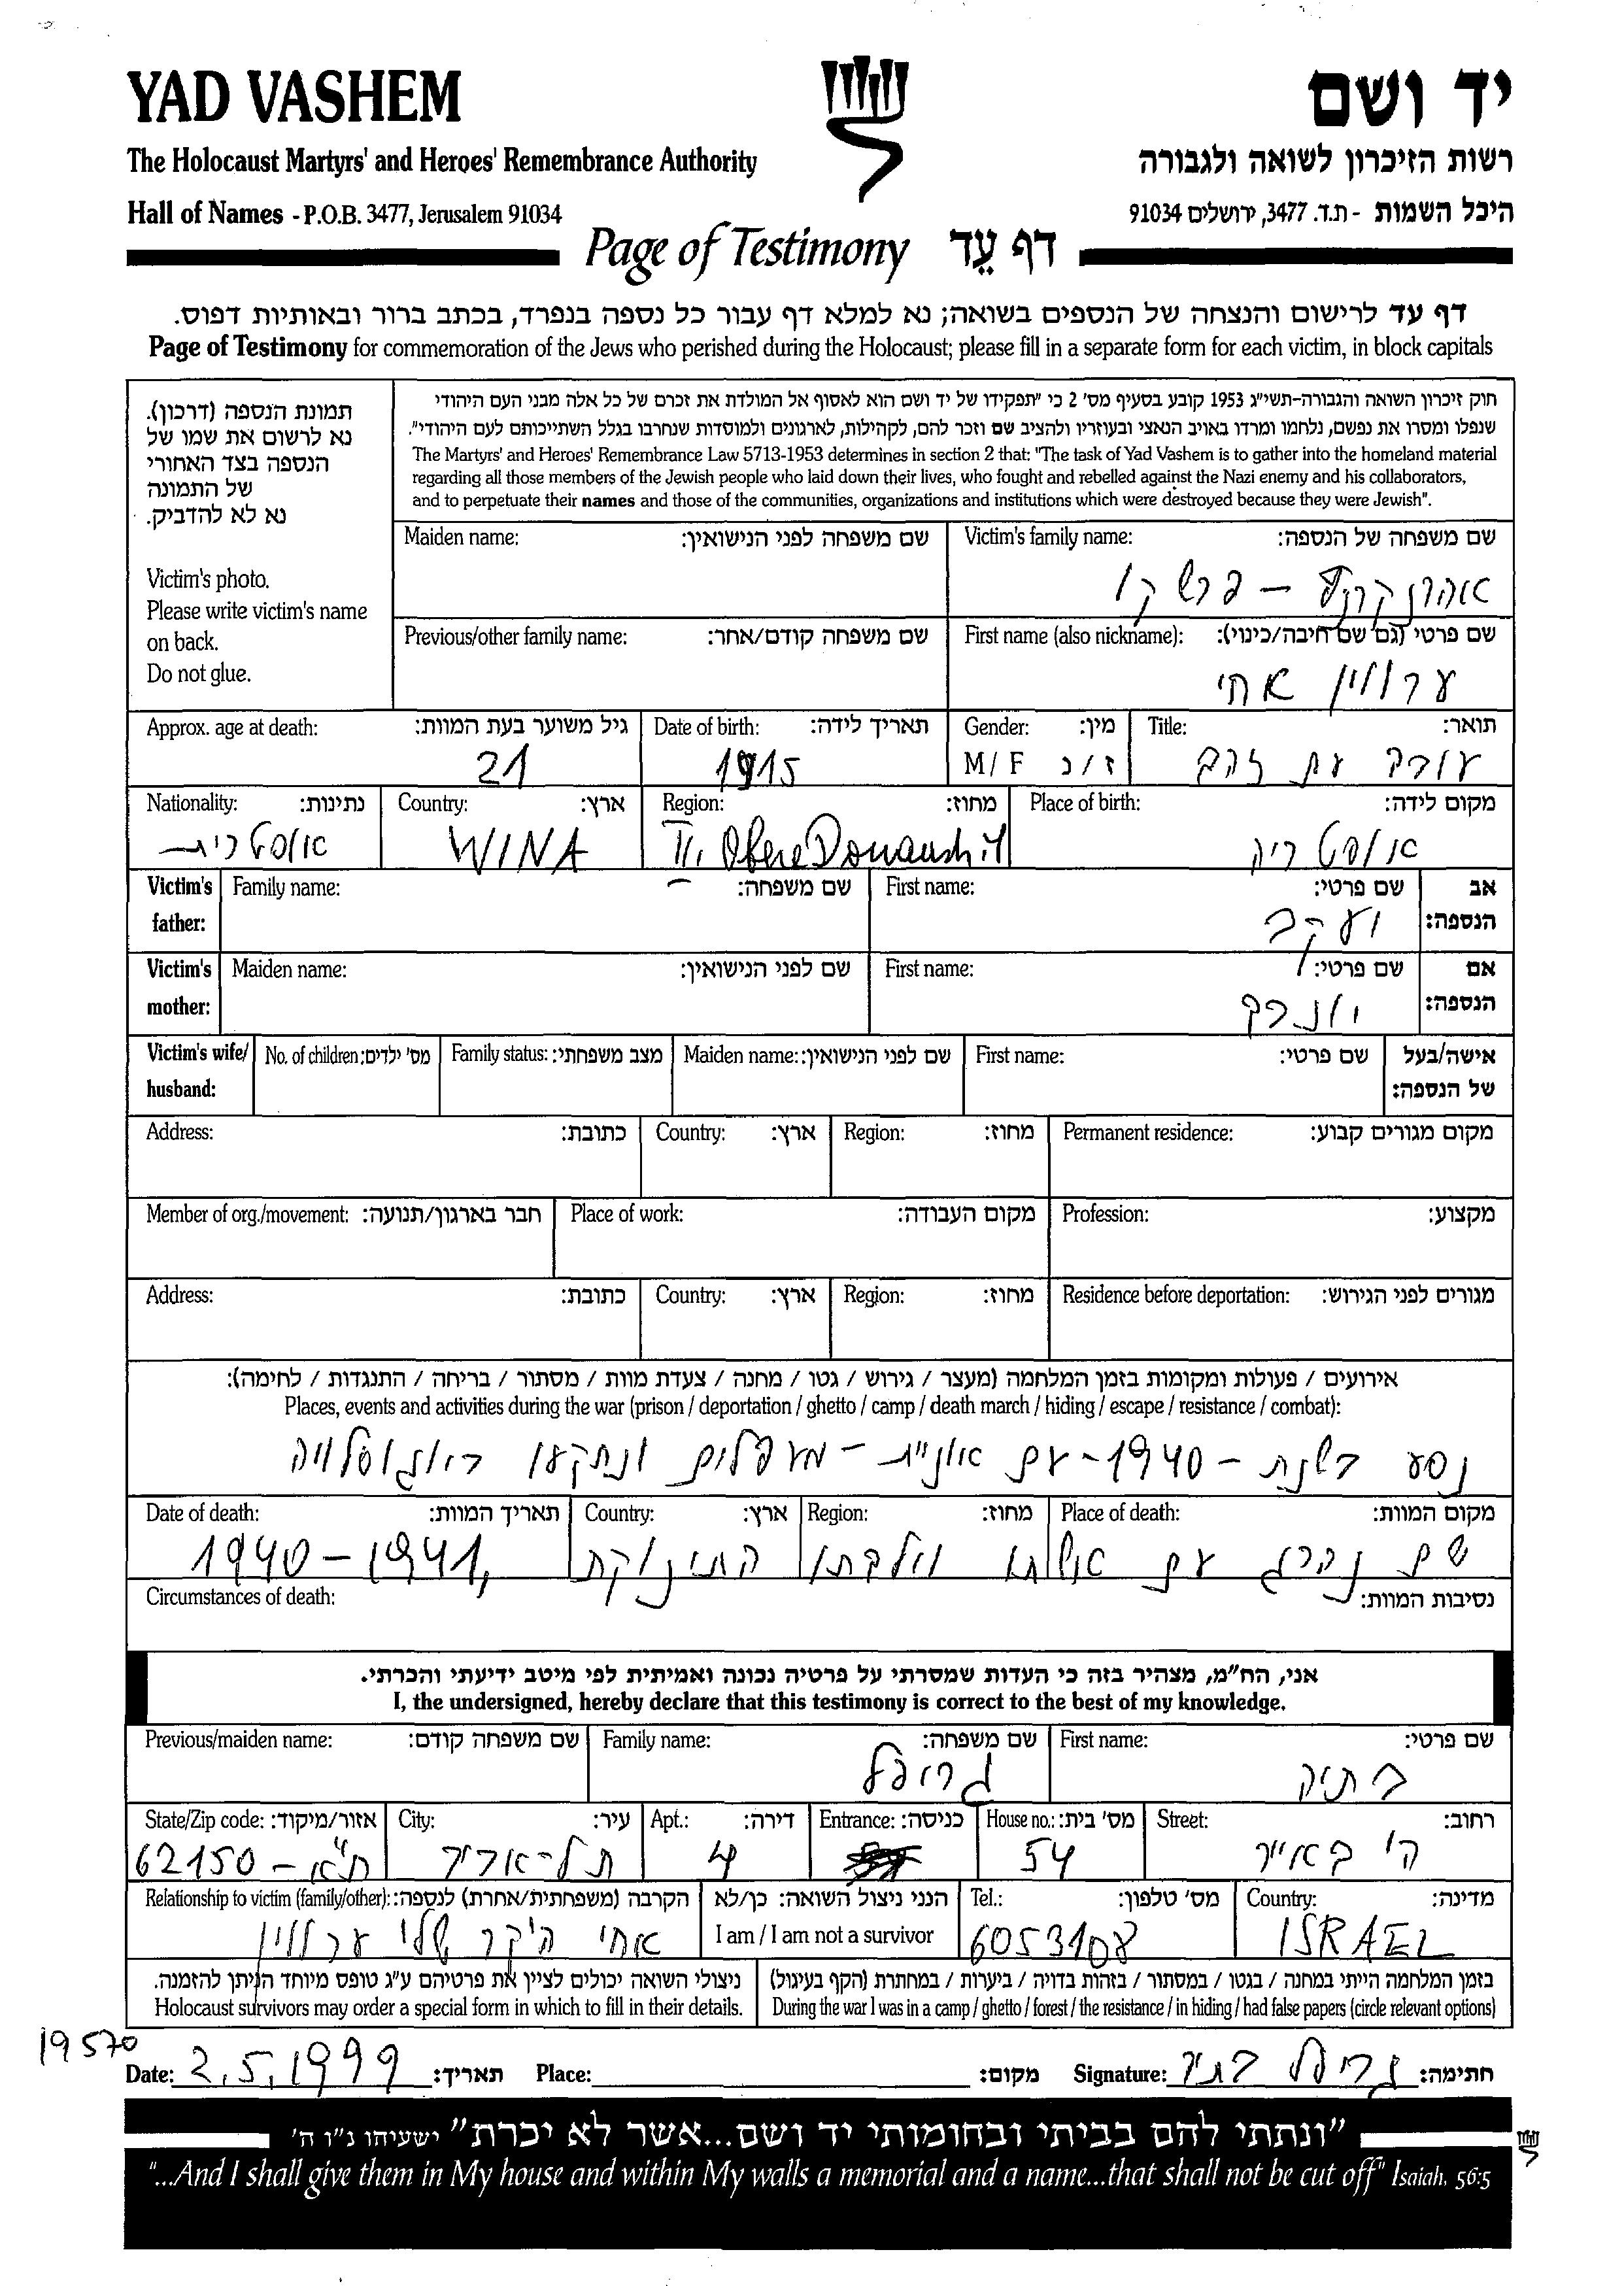 YAD VASHEM
יד ושם
The Holocaust Martyrs' and Heroes' Remembrance Authority
רשות הזיכרון לשואה ולגבורה
Hall of Names - P.O.B. 3477, Jerusalem 91034
היכל השמות - ת.ד. 3477, ירושלים 91034
Page of Testimony דף עֵד
דף עד לרישום והנצחה של הנספים בשואה; נא למלא דף עבור כל נספה בנפרד, בכתב ברור ובאותיות דפוס.
Page of Testimony for commemoration of the Jews who perished during the Holocaust; please fill in a separate form for each victim, in block capitals
תמונת הנספה (דרכון).
נא לרשום את שמו של
הנספה בצד האחורי
של התמונה
נא לא להדביק.
Victim's photo.
Please write victim's name
on back.
Do not glue.
חוק זיכרון השואה והגבורה-תשי"ג 1953 קובע בסעיף מס' 2 כי "תפקידו של יד ושם הוא לאסוף אל המולדת את זכרם של כל אלה מבני העם היהודי
שנפלו ומסרו את נפשם, נלחמו ומרדו באויב הנאצי ובעוזריו ולהציב שם וזכר להם, לקהילות, לארגונים ולמוסדות שנחרבו בגלל השתייכותם לעם היהודי".
The Martyrs' and Heroes' Remembrance Law 5713-1953 determines in section 2 that: "The task of Yad Vashem is to gather into the homeland material
regarding all those members of the Jewish people who laid down their lives, who fought and rebelled against the Nazi enemy and his collaborators,
and to perpetuate their names and those of the communities, organizations and institutions which were destroyed because they were Jewish".
Victim's family name: שם משפחה של הנספה:
Maiden name: שם משפחה לפני הנישואין:
First name (also nickname): שם פרטי (גם שם חיבה/כינוי):
ערווין אחי
Previous/other family name: שם משפחה קודם/אחר:
Title: תואר:
עורב עת זהב
Gender: מין:
M / F ז / נ
Date of birth: תאריך לידה:
1915
Approx. age at death: גיל משוער בעת המוות:
21
Place of birth: מקום לידה:
אוסטריה
Region: מחוז:
II. Obere
Country: ארץ:
WINA
Nationality: נתינות:
אוסטרית
Victim's father: אב הנספה:
First name: שם פרטי:
יעקב
Family name: שם משפחה:
Victim's mother: אם הנספה:
First name: שם פרטי:
Maiden name: שם לפני הנישואין:
Victim's wife/husband: אישה/בעל של הנספה:
First name: שם פרטי:
Maiden name: שם לפני הנישואין:
Family status: מצב משפחתי:
No. of children: מס' ילדים:
Permanent residence: מקום מגורים קבוע:
Region: מחוז:
Country: ארץ:
Address: כתובת:
Profession: מקצוע:
Place of work: מקום העבודה:
Member of org./movement: חבר בארגון/תנועה:
Residence before deportation: מגורים לפני הגירוש:
Region: מחוז:
Country: ארץ:
Address: כתובת:
אירועים / פעולות ומקומות בזמן המלחמה (מעצר / גירוש / גטו / מחנה / צעדת מוות / מסתור / בריחה / התנגדות / לחימה):
Places, events and activities during the war (prison / deportation / ghetto / camp / death march / hiding / escape / resistance / combat):
נסע בשנת - 1940 - עם אוניית - מעפלים ונתקעו ביוגוסלויה
Place of death: מקום המוות:
Region: מחוז:
Country: ארץ:
Date of death: תאריך המוות:
שם נהרג עם אשתו וילדתו התינוקת 1940 - 1941,
Circumstances of death: נסיבות המוות:
אני, הח"מ, מצהיר בזה כי העדות שמסרתי על פרטיה נכונה ואמיתית לפי מיטב ידיעתי והכרתי.
I, the undersigned, hereby declare that this testimony is correct to the best of my knowledge.
First name: שם פרטי:
בתיה
Family name: שם משפחה:
גרופל
Previous/maiden name: שם משפחה קודם:
Street: רחוב:
ה' באייר
House no.: מס' בית:
54
Entrance: כניסה:
Apt.: דירה:
4
City: עיר:
תל-אביב
State/Zip code: אזור/מיקוד:
ת"א - 62150
Country: מדינה:
ISRAEL
Tel.: מס' טלפון:
6053108
הנני ניצול השואה: כן/לא
I am / I am not a survivor
Relationship to victim (family/other): הקרבה (משפחתית/אחרת) לנספה:
אחי היקר שלי ערווין
בזמן המלחמה הייתי במחנה / בגטו / במסתור / בזהות בדויה / ביערות / במחתרת (הקף בעיגול)
During the war I was in a camp / ghetto / forest / the resistance / in hiding / had false papers (circle relevant options)
ניצולי השואה יכולים לציין את פרטיהם ע"ג טופס מיוחד הניתן להזמנה.
Holocaust survivors may order a special form in which to fill in their details.
19570
Date: 2.5.1999 תאריך:
Place: מקום:
Signature: חתימה:
"ונתתי להם בביתי ובחומותי יד ושם...אשר לא יכרת" ישעיהו נ"ו ה'
"...And I shall give them in My house and within My walls a memorial and a name...that shall not be cut off" Isaiah, 56:5